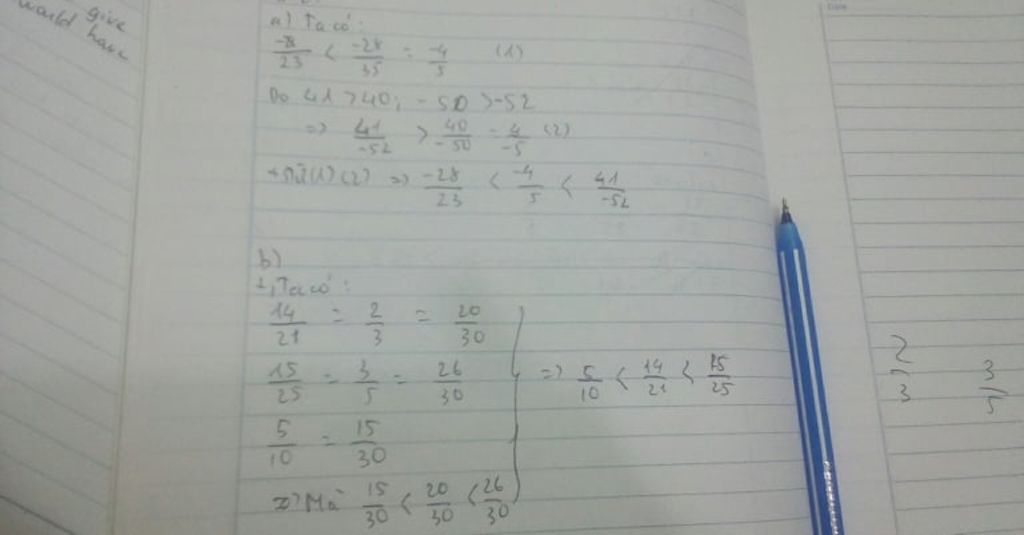 give
would have
a) Ta có:
-8/23 < -28/35 = -4/5 (1)
Do 41 > 40; -50 > -52
=> 41/-52 > 40/-50 = 4/-5 (2)
+ Từ (1) (2) => -28/23 < -4/5 < 41/-52
b)
1, Ta có:
14/21 = 2/3 = 20/30
15/25 = 3/5 = 26/30
=> 5/10 < 14/21 < 15/25
5/10 = 15/30
=> Mà 15/30 < 20/30 < 26/30
2/3 3/5